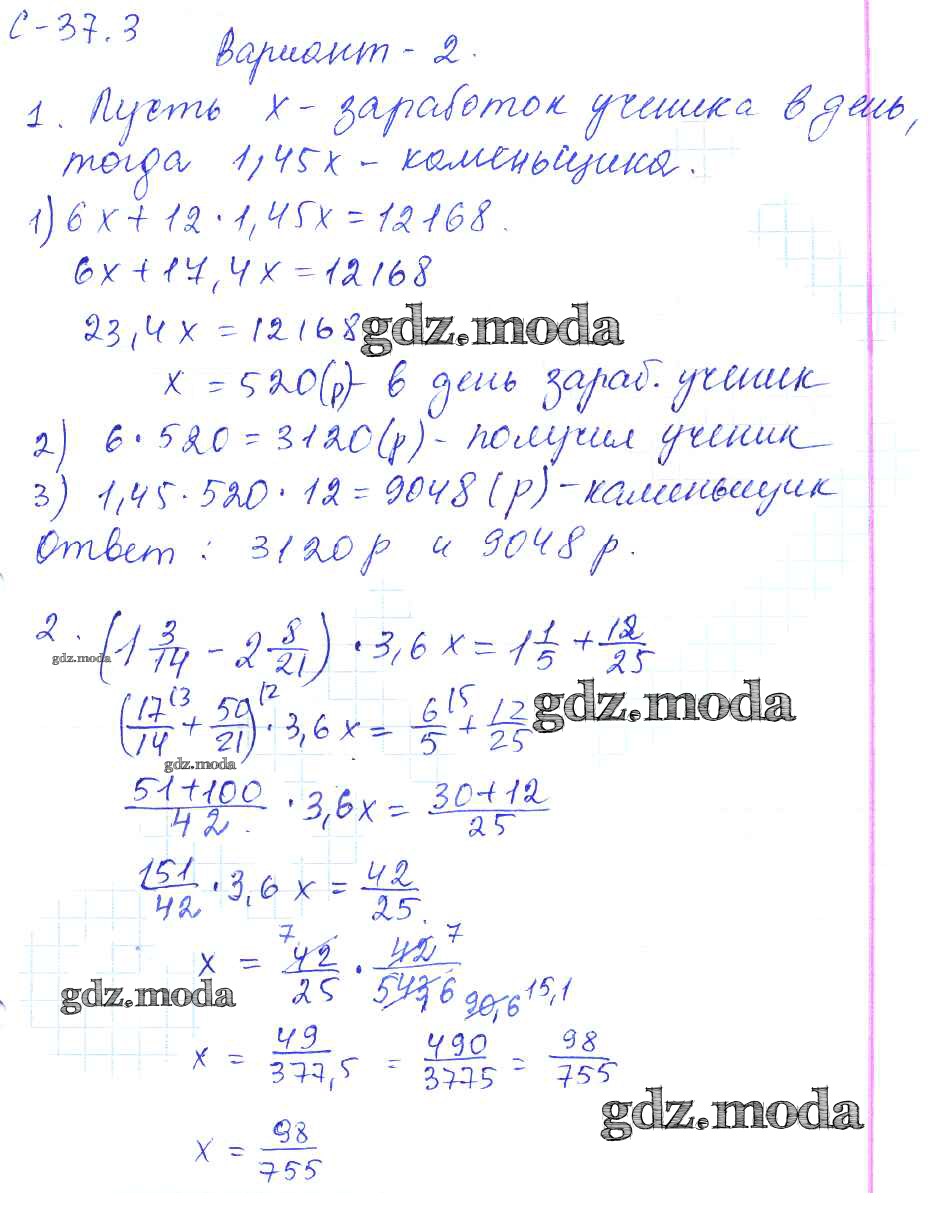 С-37.3
Вариант - 2.
1. Пусть x - заработок ученика в день,
тогда 1,45x - каменьщика.
1) 6x + 12 · 1,45x = 12168.
6x + 17,4x = 12168
23,4x = 12168
gdz.moda
x = 520(р) - в день зараб. ученик
2) 6 · 520 = 3120(р) - получил ученик
3) 1,45 · 520 · 12 = 9048 (р) - каменьщик
Ответ: 3120 р и 9048 р.
2. (1 3/14 - 2 8/21) · 3,6 x = 1 1/5 + 12/25
gdz.moda
gdz.moda
(17/14 (3 + 50/21 (2) · 3,6 x = 6/5 (5 + 12/25
gdz.moda
51+100/42 · 3,6x = 30+12/25
151/42 · 3,6 x = 42/25.
x = 42/25 7 · 42/543,6 7 90,6 15,1
gdz.moda
x = 49/377,5 = 490/3775 = 98/755
gdz.moda
x = 98/755